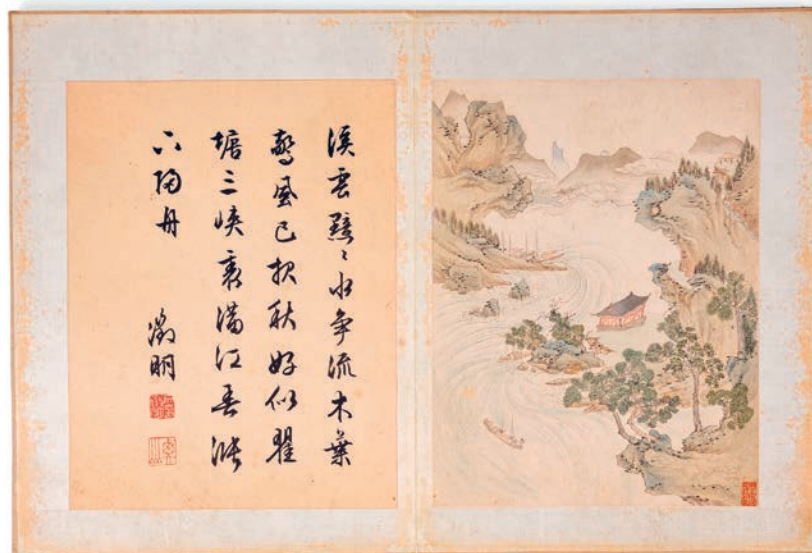 溪雲黯〻水爭流木葉
驚風已報秋好似瞿
塘三峽裏滿江春漲
下歸舟
徵明